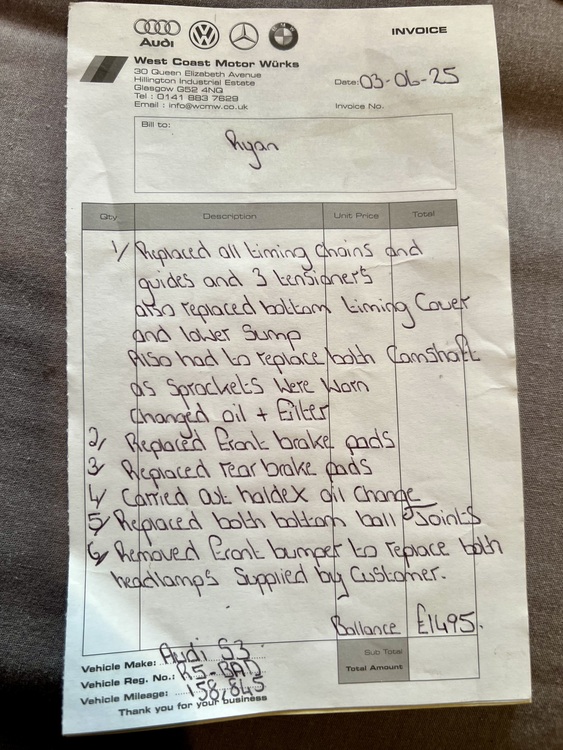 INVOICE
Audi
West Coast Motor Würks
30 Queen Elizabeth Avenue
Hillington Industrial Estate
Glasgow G52 4NQ
Tel : 0141 883 7629
Email : info@wcmw.co.uk
Date: 03-06-25
Invoice No.
Bill to:
Ryan
Qty Description Unit Price Total
1/ Replaced all timing chains and
guides and 3 tensioners
also replaced bottom timing Cover
and lower Sump
Also had to replace both Camshaft
as Sprockets were worn
Changed oil + Filter
2/ Replaced front brake pads
3/ Replaced rear brake pads
4/ Carried out haldex oil Change
5/ Replaced both bottom ball Joints
6/ Removed front bumper to replace both
headlamps Supplied by Customer.
Ballance £1495.
Sub Total
Total Amount
Vehicle Make: Audi S3
Vehicle Reg. No.: R5-BAD
Vehicle Mileage: 158,845
Thank you for your business